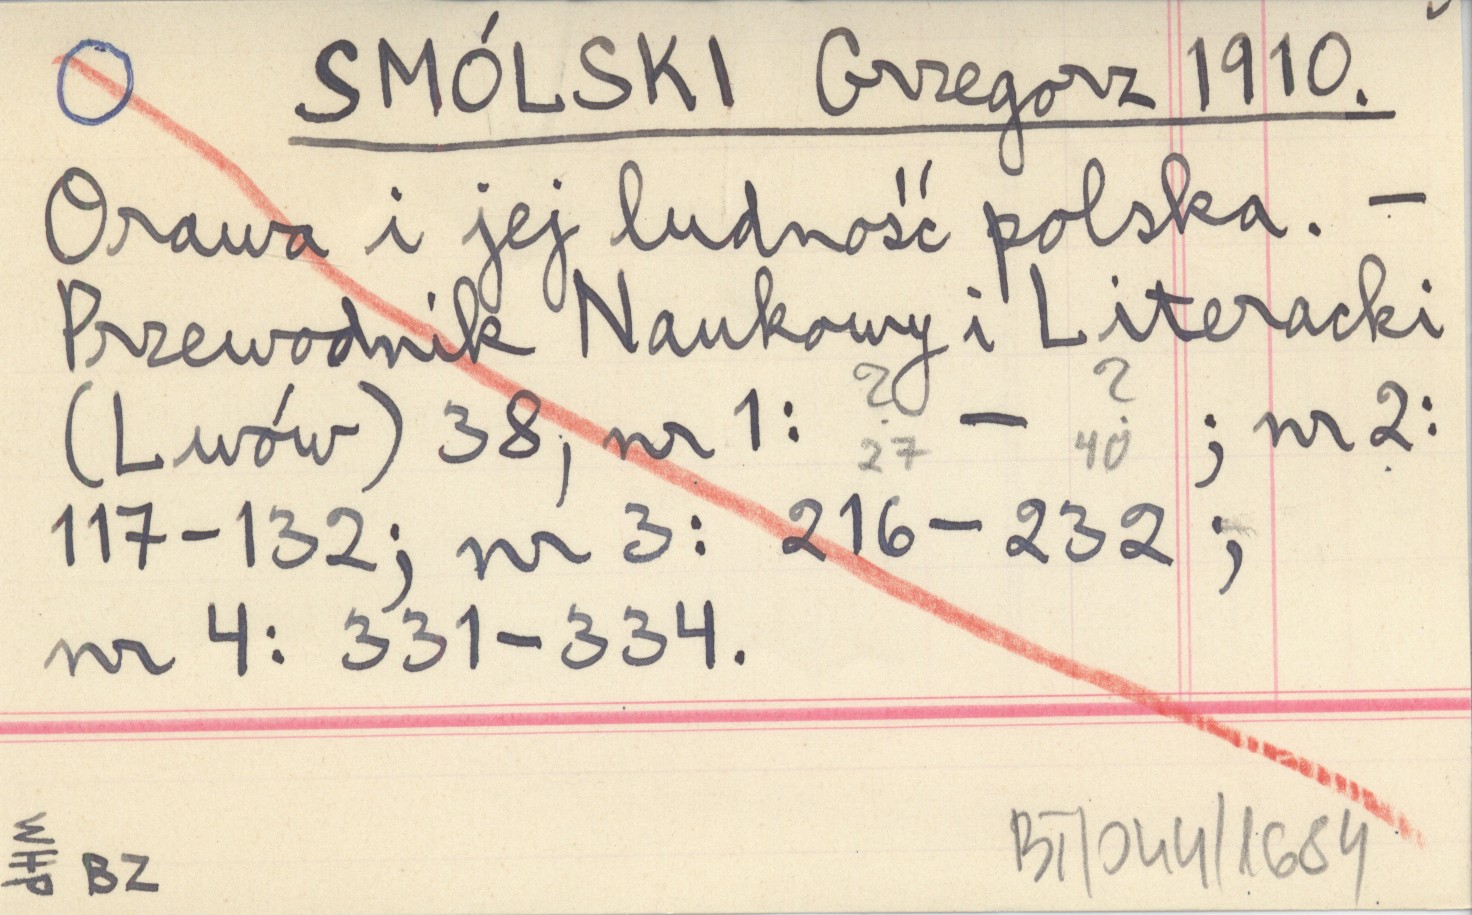 SMÓLSKI Grzegorz 1910.
Orawa i jej ludność polska. –
Przewodnik Naukowy i Literacki
(Lwów) 38, nr 1: ? 27 – ? 40 ; nr 2:
117–132; nr 3: 216–232 ;
nr 4: 331–334.
BZ
BI/044/1684